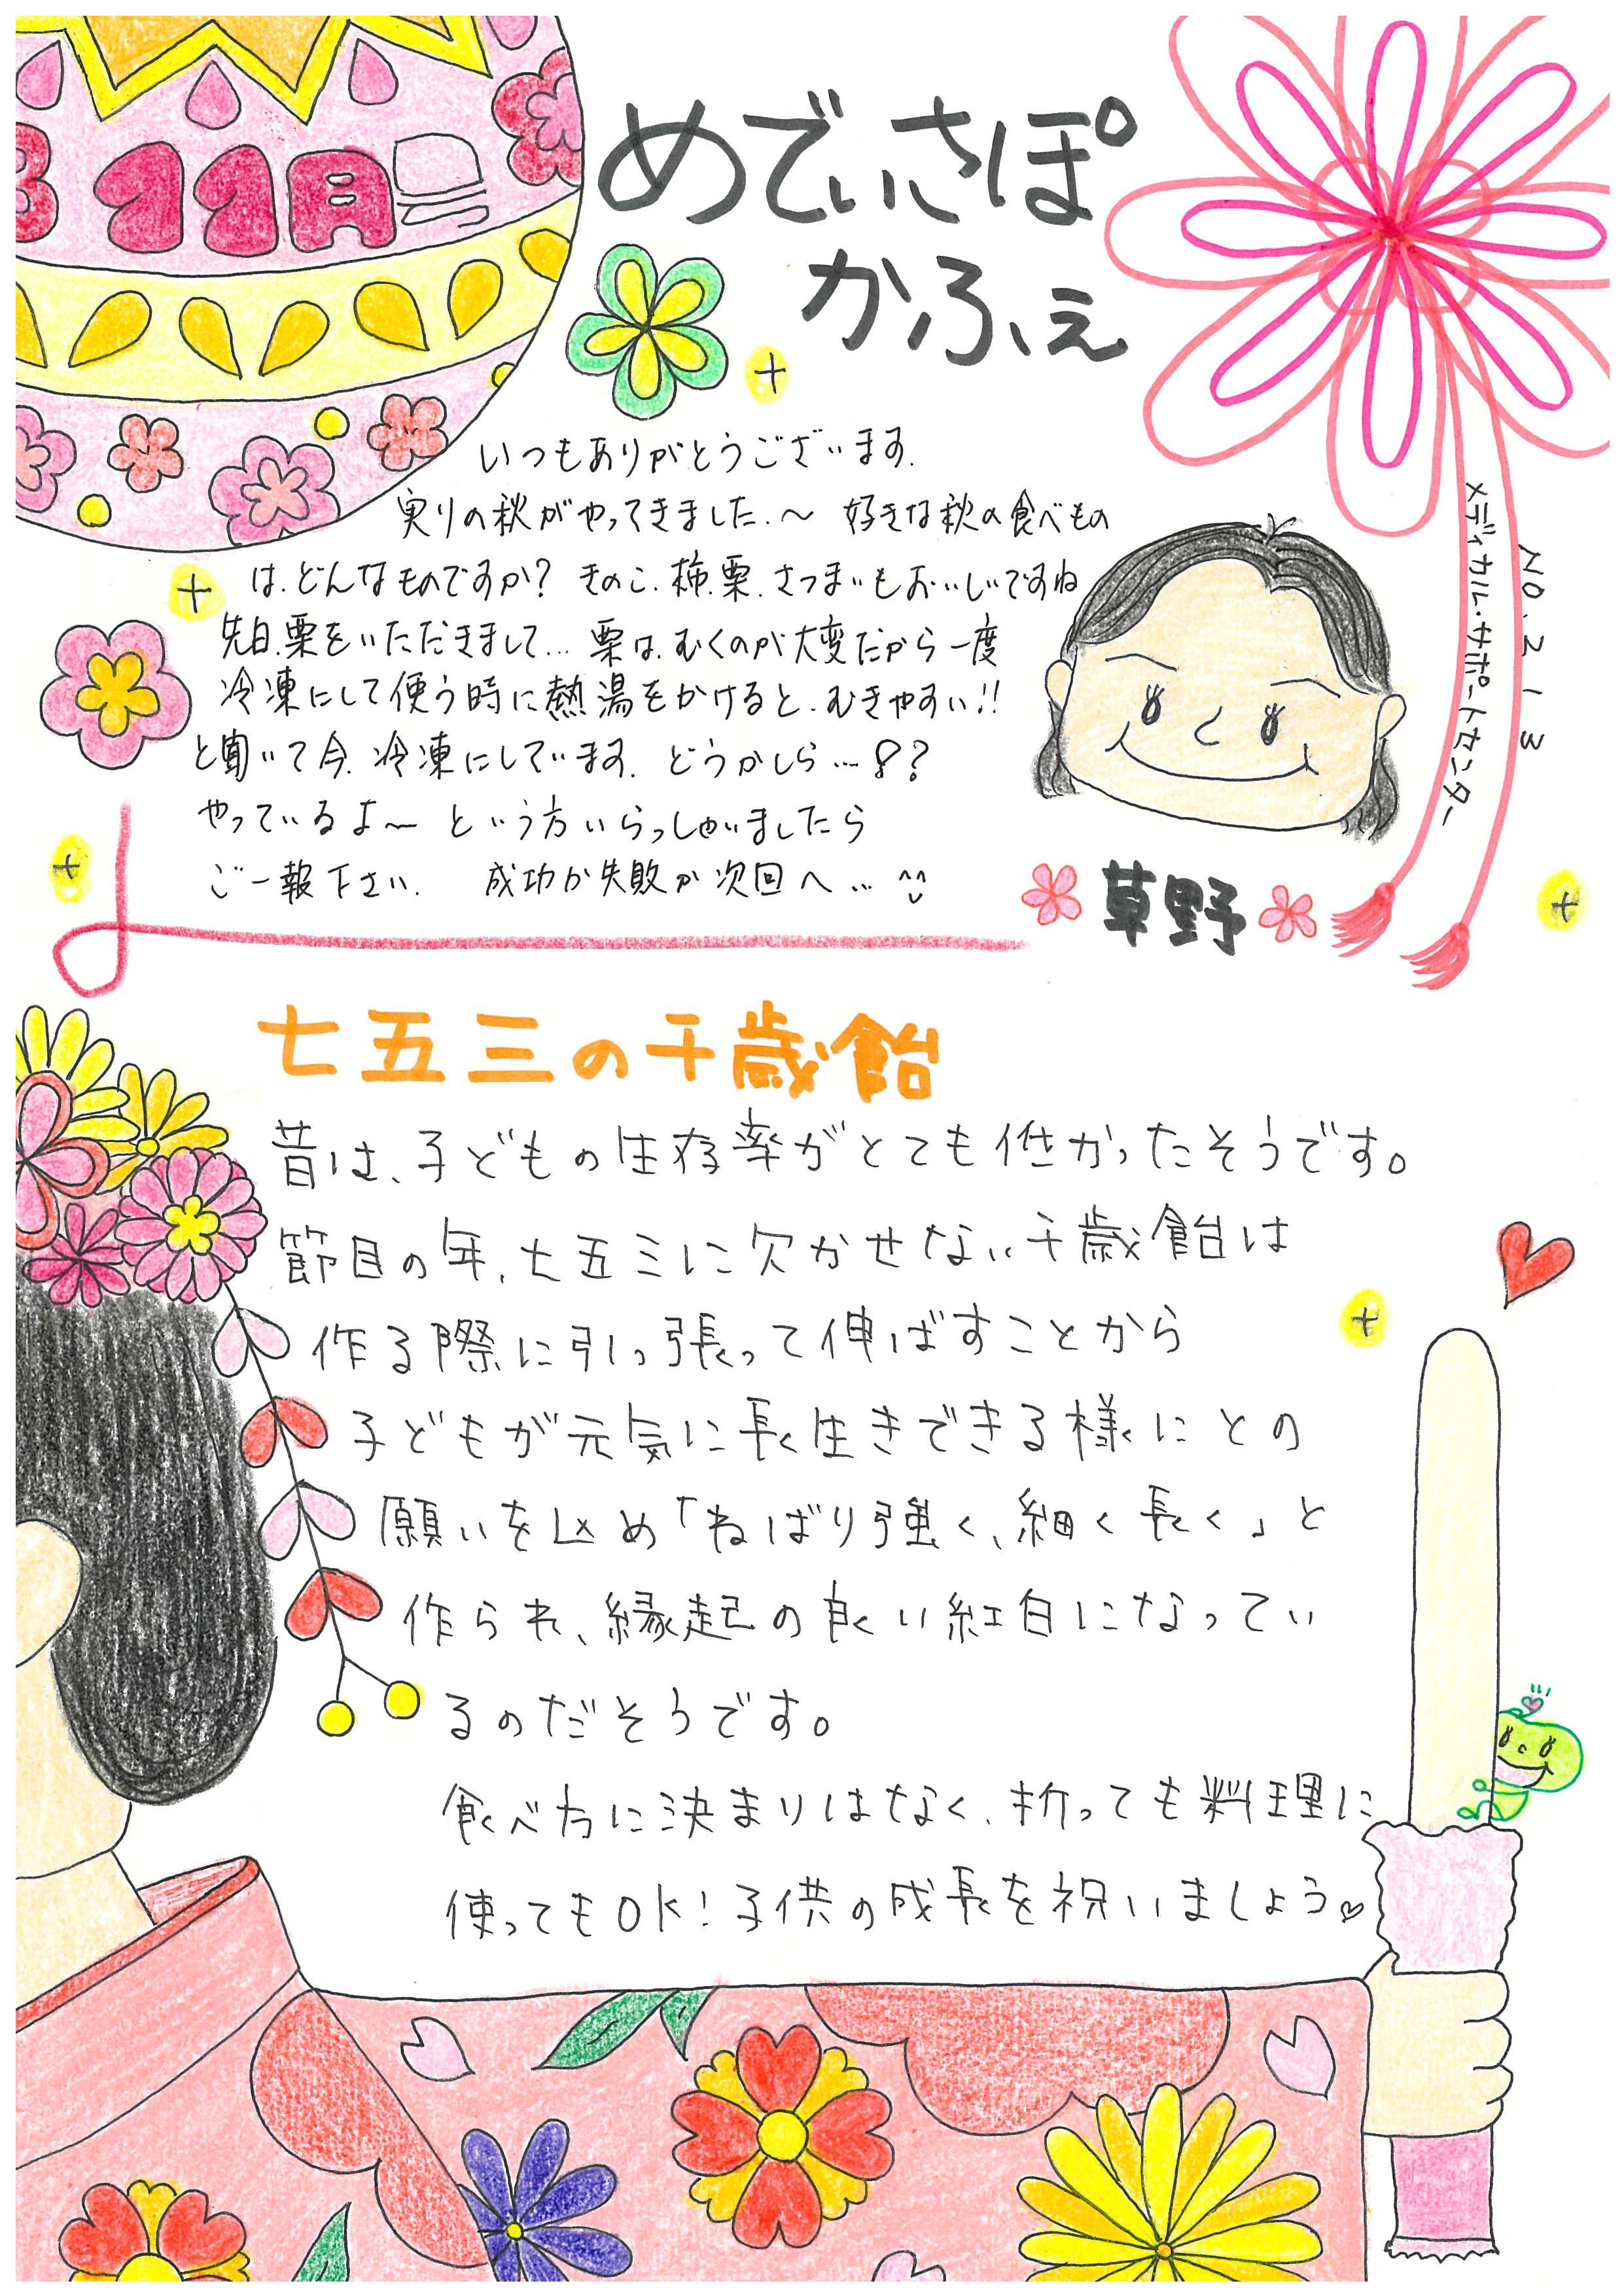 11月号
めでぃさぽ
かふぇ
NO.213
メディカル・サポートセンター
いつもありがとうございます.
実りの秋がやってきました.～ 好きな秋の食べもの
は.どんなものですか? きのこ.柿.栗.さつまいもおいしいですね
先日.栗をいただきまして… 栗は.むくのが大変だから一度
冷凍にして使う時に熱湯をかけると.むきやすい!!
と聞いて今.冷凍にしています. どうかしら…!?
やっているよ～ という方いらっしゃいましたら
ご一報下さい. 成功か失敗か次回へ…
草野
七五三の千歳飴
昔は、子どもの生存率がとても低かったそうです。
節目の年、七五三に欠かせない千歳飴は
作る際に引っ張って伸ばすことから
子どもが元気に長生きできる様にとの
願いを込め「ねばり強く、細く長く」と
作られ、縁起の良い紅白になってい
るのだそうです。
食べ方に決まりはなく、折っても料理に
使ってもOK!子供の成長を祝いましょう♡